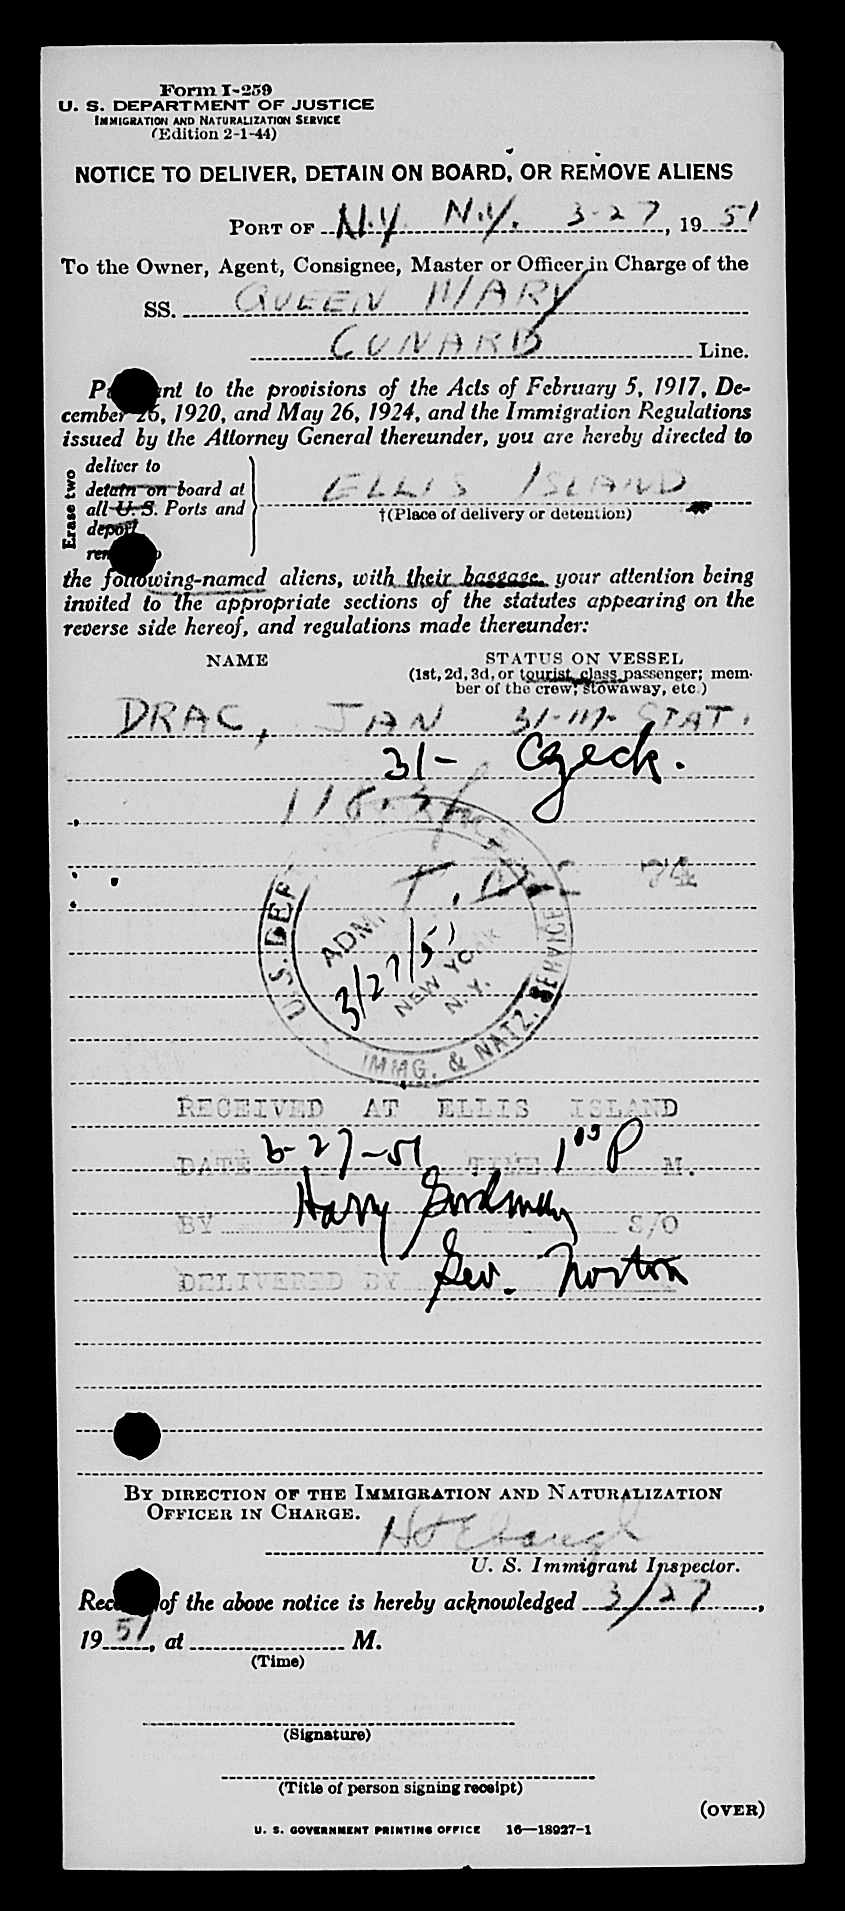 Form I-259
U. S. DEPARTMENT OF JUSTICE
IMMIGRATION AND NATURALIZATION SERVICE
(Edition 2-1-44)
NOTICE TO DELIVER, DETAIN ON BOARD, OR REMOVE ALIENS
PORT OF N.Y. N.Y. 3-27, 1951
To the Owner, Agent, Consignee, Master or Officer in Charge of the
SS. QUEEN MARY
CUNARD Line.
P nt to the provisions of the Acts of February 5, 1917, De-
cember 26, 1920, and May 26, 1924, and the Immigration Regulations
issued by the Attorney General thereunder, you are hereby directed to
Erase two
deliver to
detain on board at
all U. S. Ports and
deport
ELLIS ISLAND
†(Place of delivery or detention)
the following-named aliens, with their baggage, your attention being
invited to the appropriate sections of the statutes appearing on the
reverse side hereof, and regulations made thereunder:
NAME STATUS ON VESSEL
(1st, 2d, 3d, or tourist class passenger; mem-
ber of the crew; stowaway, etc.)
DRAC, JAN 31-M- STAT.
31- Czeck.
U.S. DEP
ADM.
3/27/51
NEW YORK
N.Y.
IMMG. & NATZ. SERVICE
RECEIVED AT ELLIS ISLAND
DATE 3-27-51 TIME 1 P M.
BY Harry Goodman S/O
DELIVERED BY Geo. Norton
BY DIRECTION OF THE IMMIGRATION AND NATURALIZATION
OFFICER IN CHARGE.
U. S. Immigrant Inspector.
Rec of the above notice is hereby acknowledged 3/27,
1951, at M.
(Time)
(Signature)
(Title of person signing receipt)
(OVER)
U. S. GOVERNMENT PRINTING OFFICE 16—18927-1